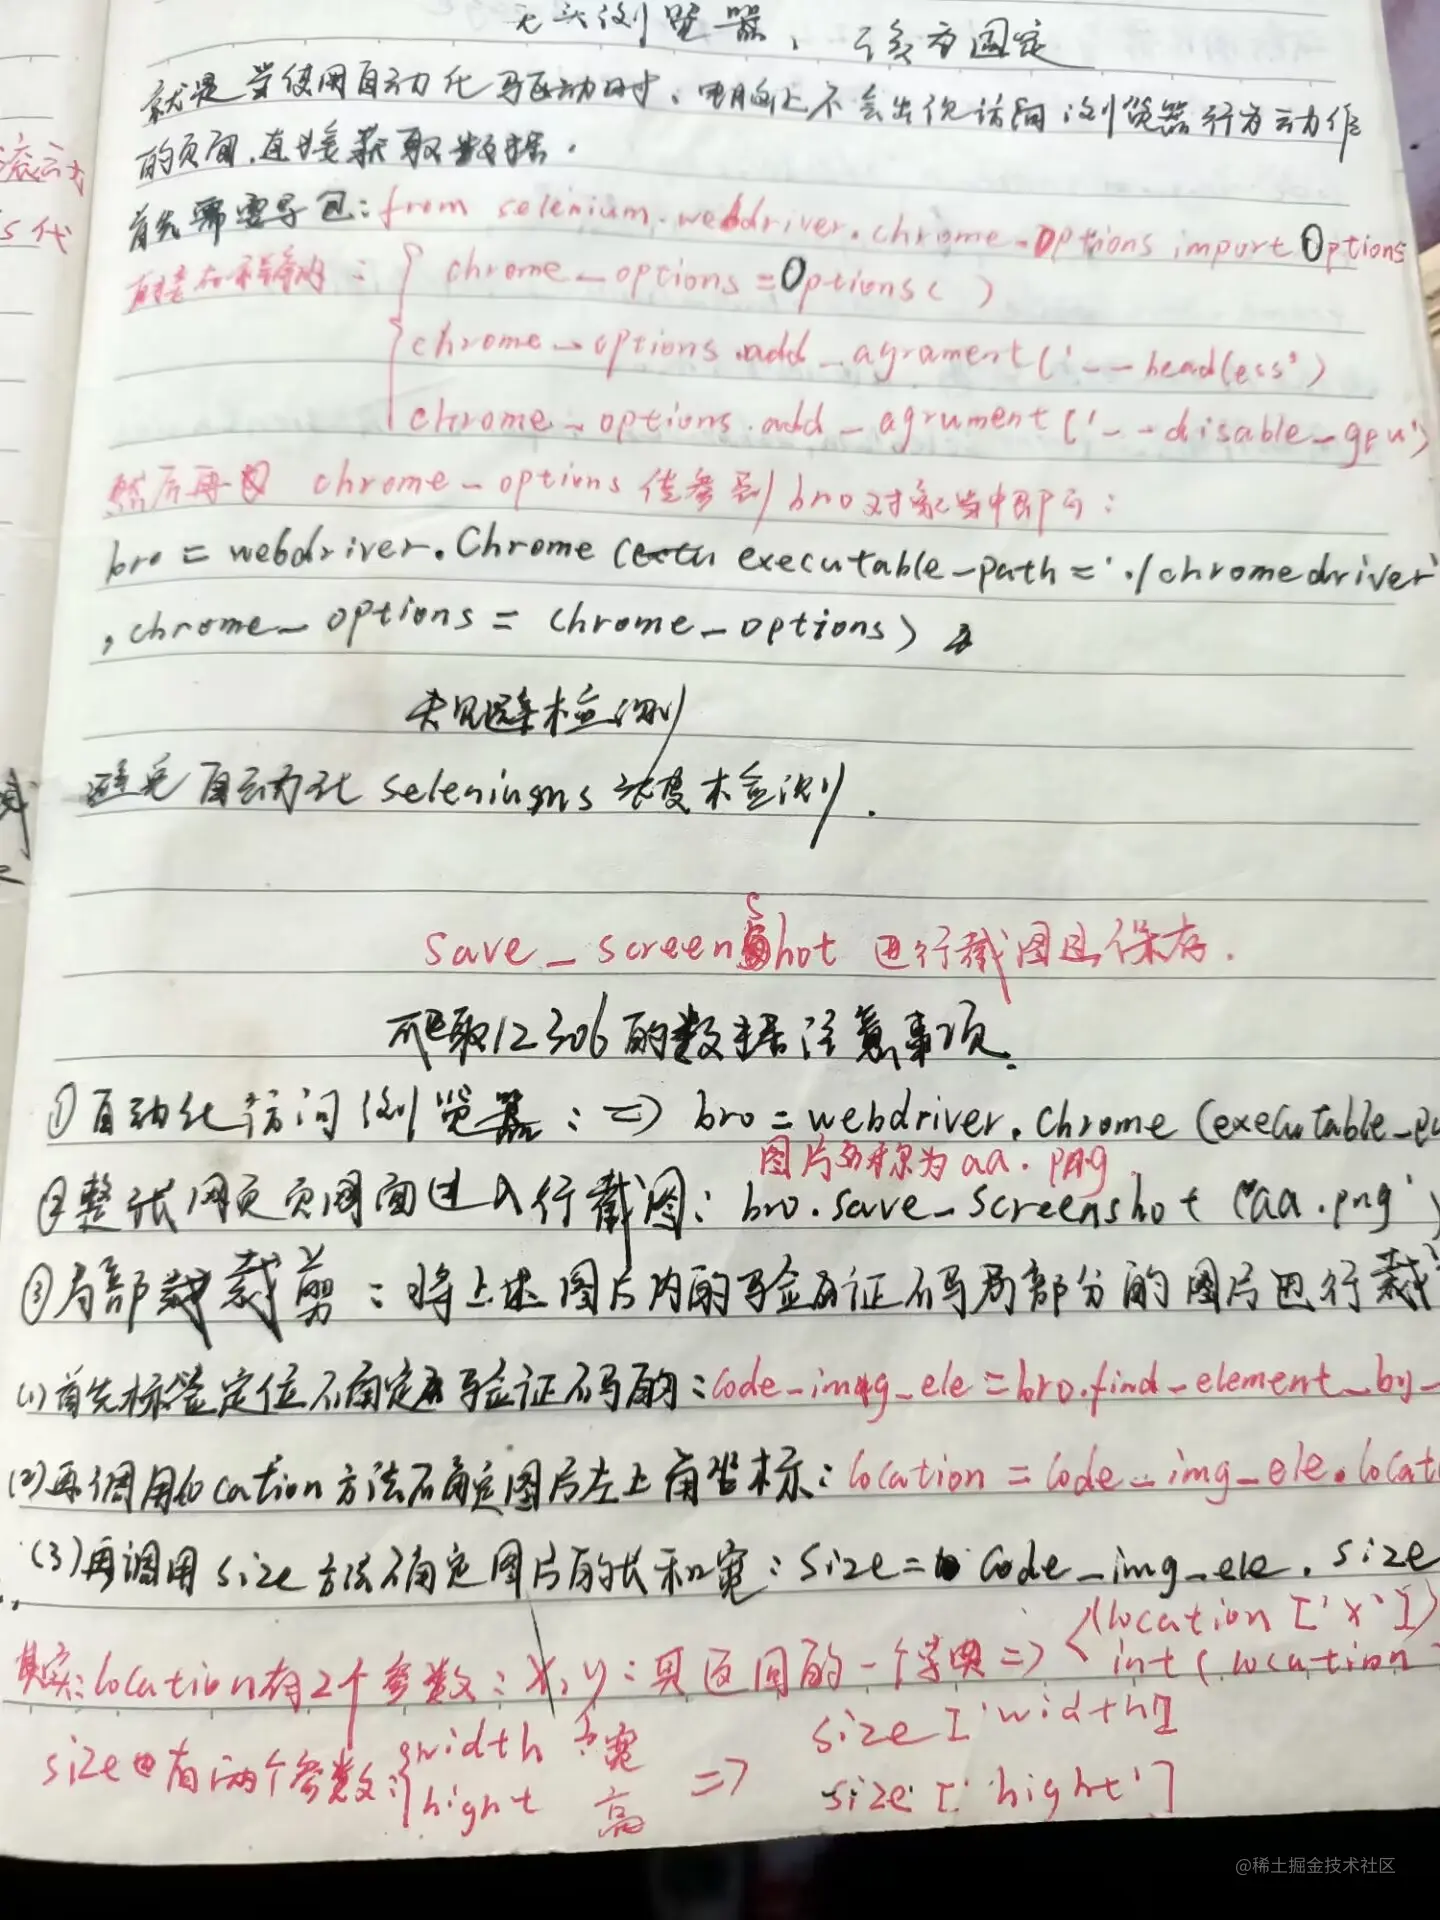 无头浏览器、该为固定
就是当使用自动化驱动时、电脑上不会出现访问浏览器行为动作
的页面,直接获取数据.
首先需要导包:from selenium.webdriver.chrome.options import Options
直接在
: chrome_options=Options()
chrome_options.add_agrament('--headless')
chrome_options.add_agrument('--disable-gpu')
然后再 chrome_options 传参到bro对象当中即可:
bro = webdriver.Chrome ( executable_path = './chromedriver'
,chrome_options = chrome_options)
规避检测
避免自动化 seleniums 被检测.
save_screenshot 进行截图且保存.
爬取12306的数据注意事项.
①自动化访问浏览器:=> bro = webdriver.Chrome (executable_pa
图片名称为 aa.png
②整张网页页面进行截图: bro.save_screenshot ('aa.png')
③局部裁剪:将上述图片内的验证码局部分的图片进行裁
(1)首先标签定位确定验证码的:code_img_ele=bro.find_element_by_
(2)再调用location方法确定图片左上角坐标:location = code_img_ele.locati
(3)再调用size方法确定图片的长和宽:size= code_img_ele.size
其实:location有2个参数:x,y:其返回的一个字典=> (location ['x'])
int(location
size也有两个参数:width 宽 => size['width']
hight 高 size['hight']
滚动
s代
@稀土掘金技术社区